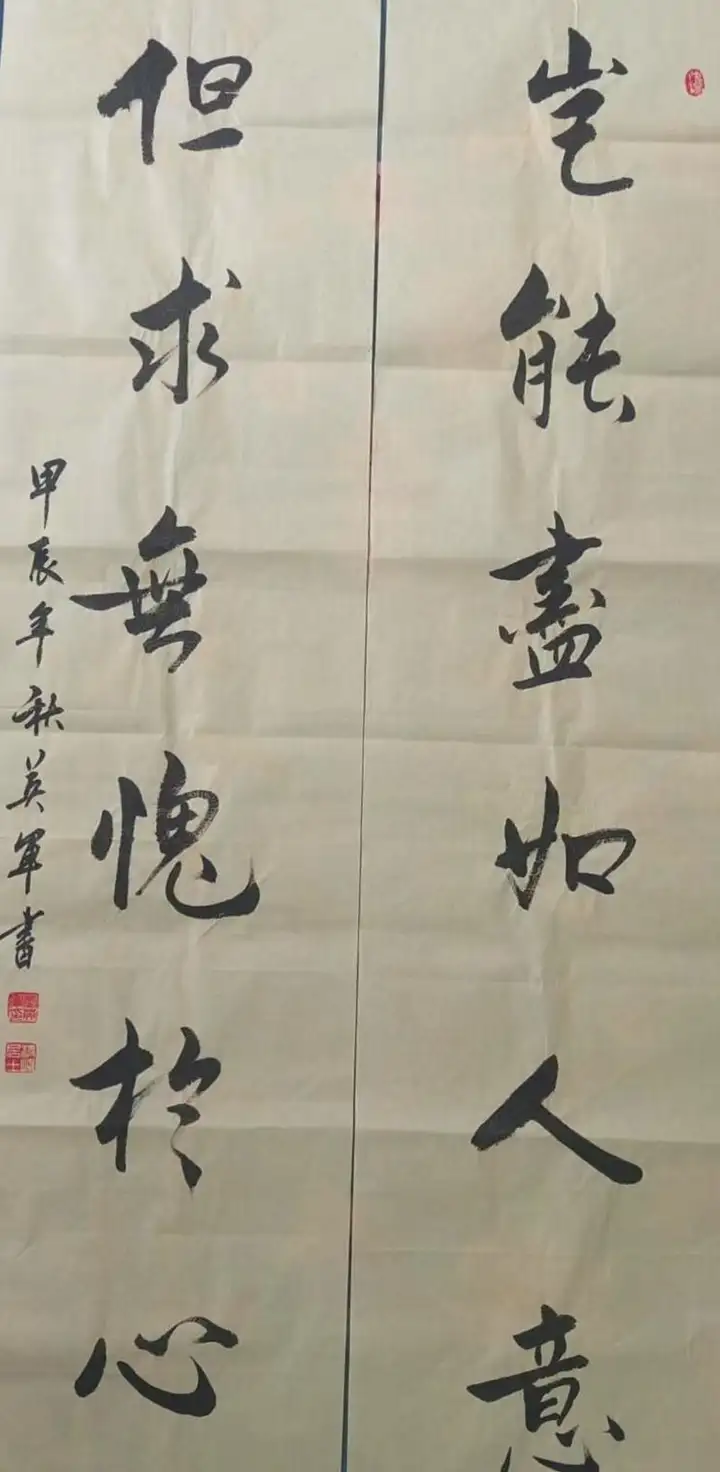 岂能盡如人意
但求無愧於心
甲辰年秋英軍書